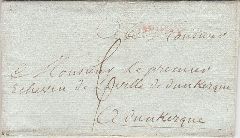 Monsieur
a Monsieur le premier
Echevin de la ville de dunkerque
a dunkerque